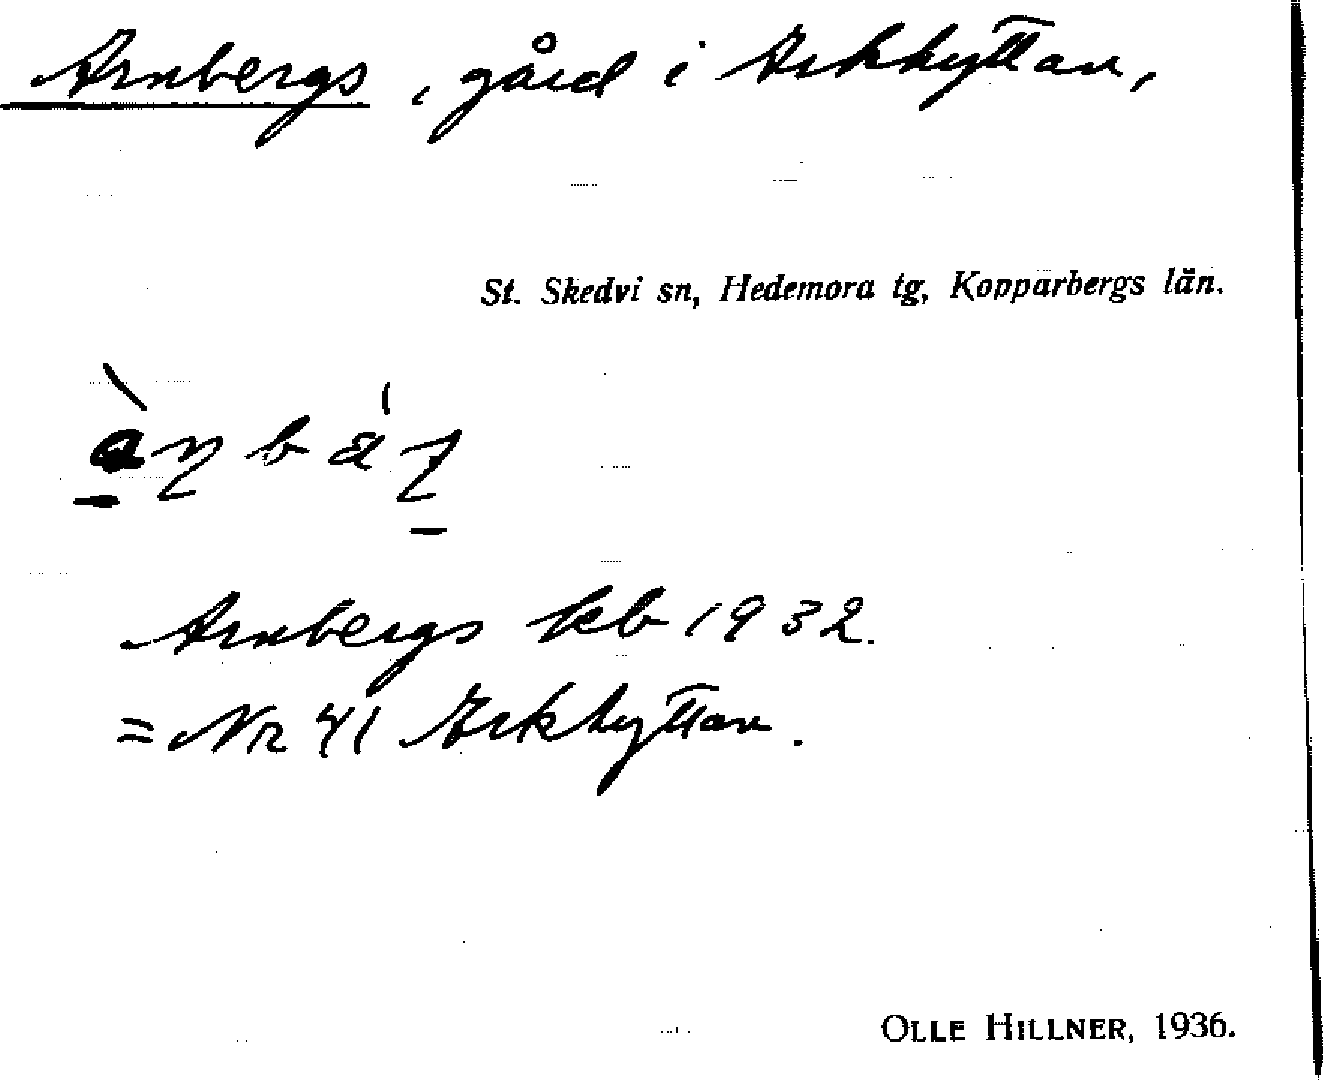 Arnbergs, gård i Arkhyttan,
St. Skedvi sn, Hedemora tg, Kopparbergs län.
Arnbergs kb 1932.
= Nr 41 Arkhyttan.
OLLE HILLNER, 1936.